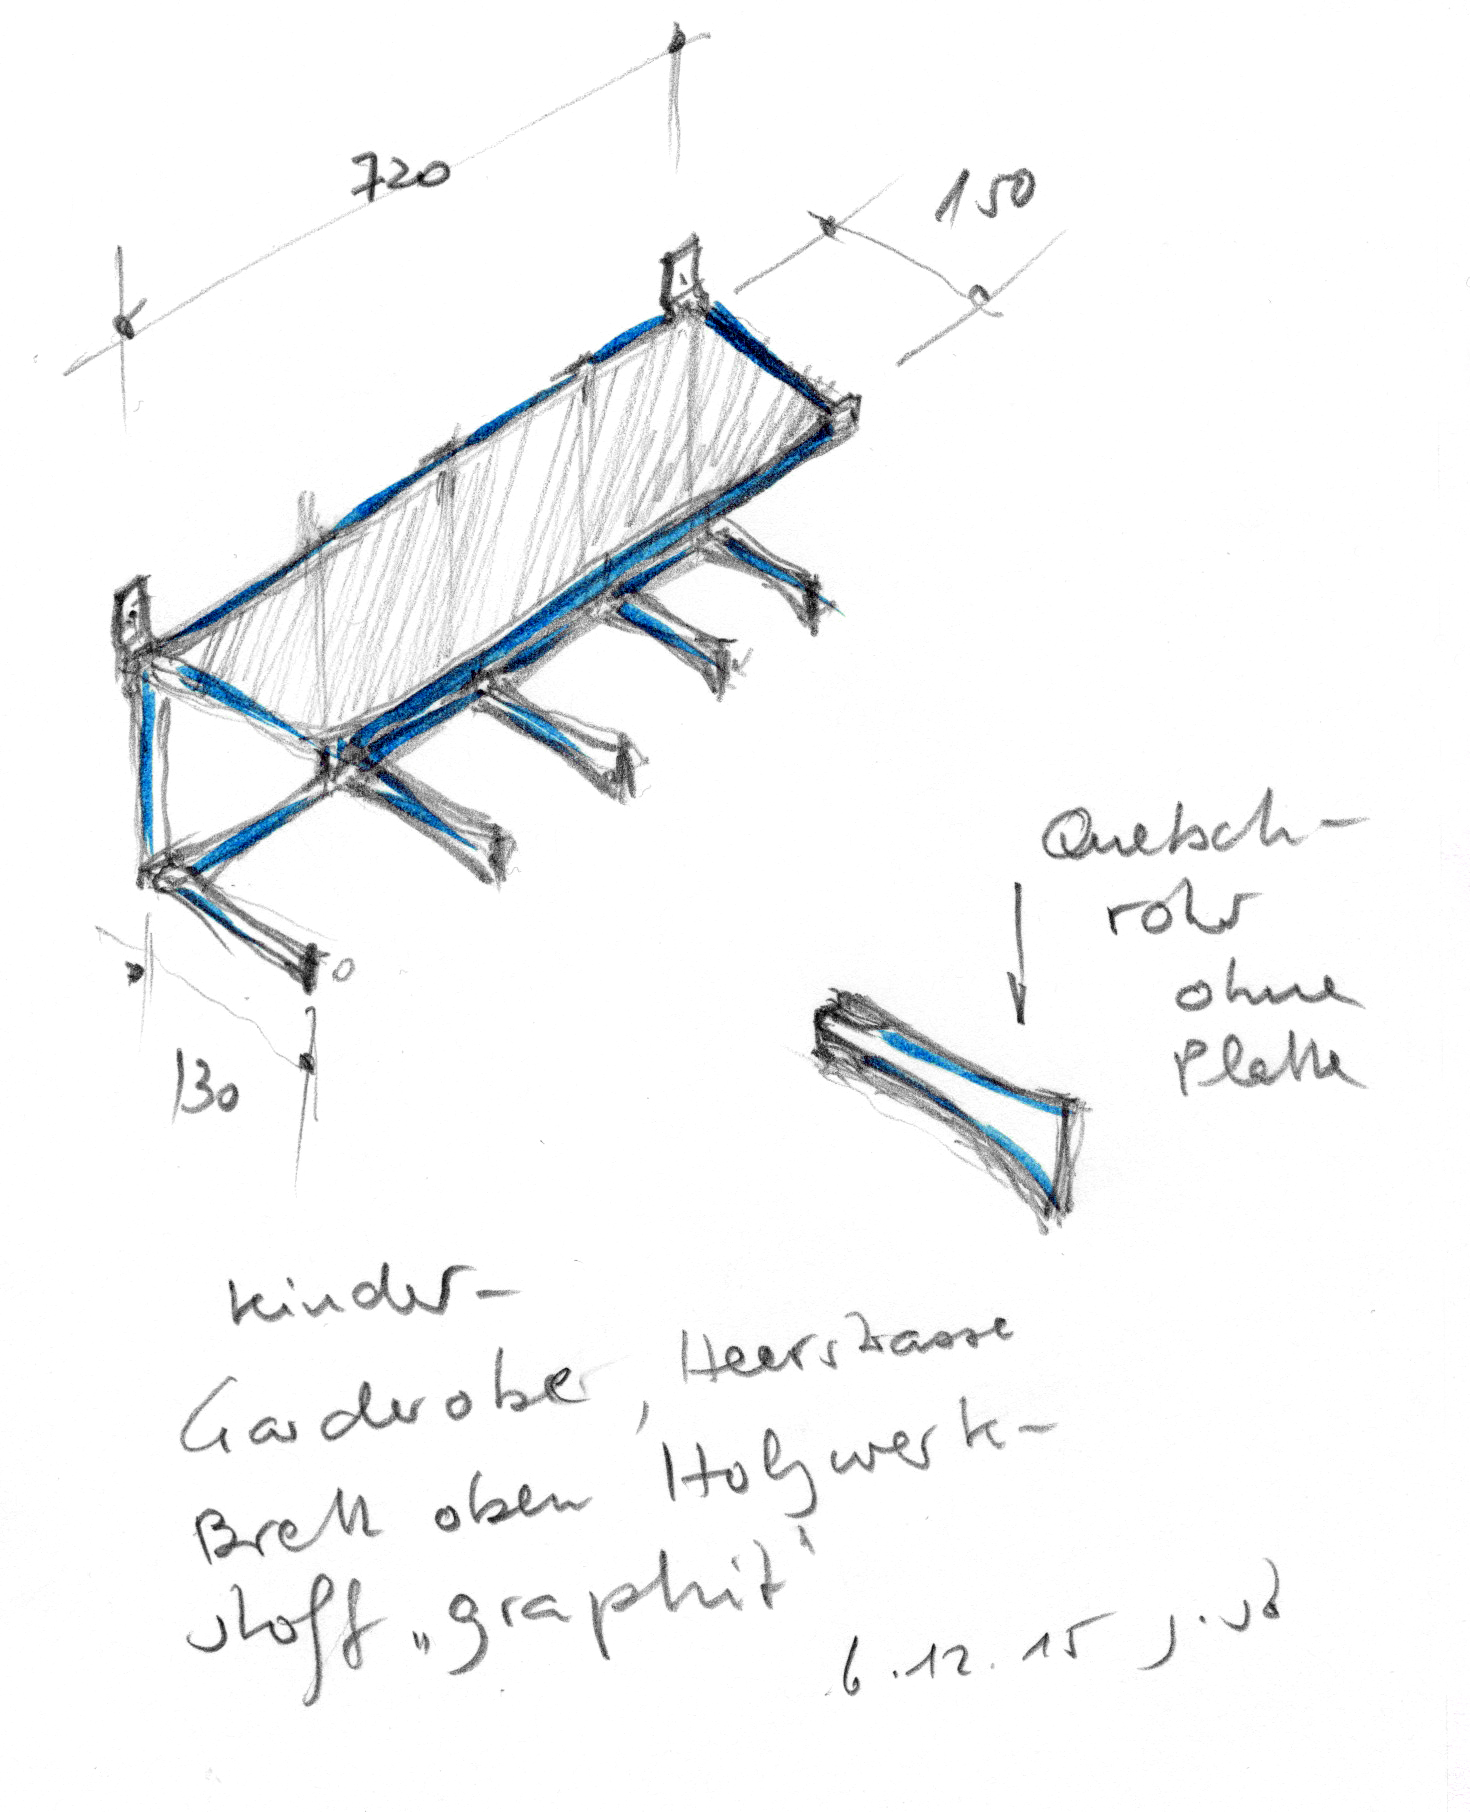 720
150
130
Quetsch-
rohr
ohne
Platte
Kinder-
Garderobe, Heerstrasse
Brett oben Holzwerk-
stoff „graphit“
6.12.15